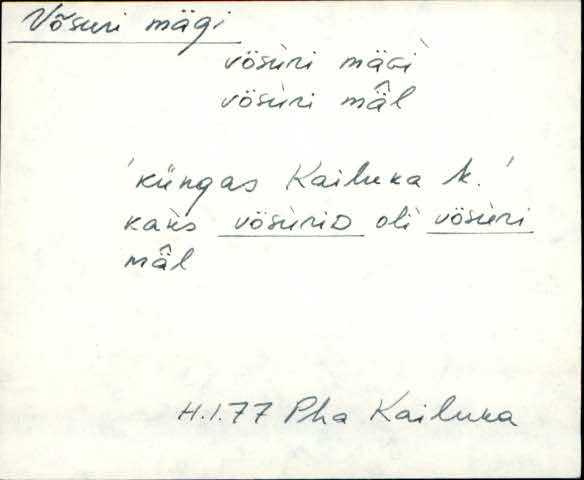 Võsuri mägi
vösùri mäGì
vösùri mâl
'küngas Kailuka k.'
kaks vösùriD olì vösùri
mâl
H.I.77 Pha Kailuka